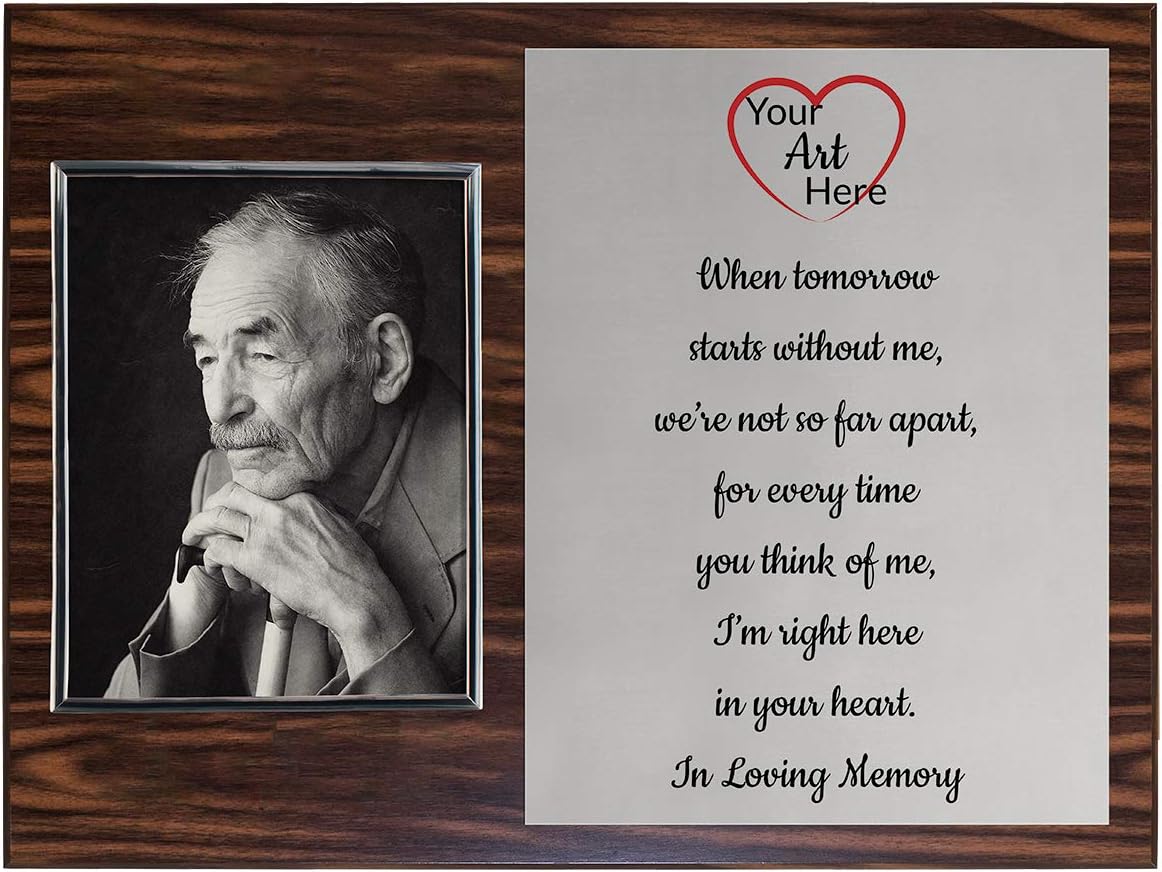 Your
Art
Here
When tomorrow
starts without me,
we're not so far apart,
for every time
you think of me,
I'm right here
in your heart.
In Loving Memory